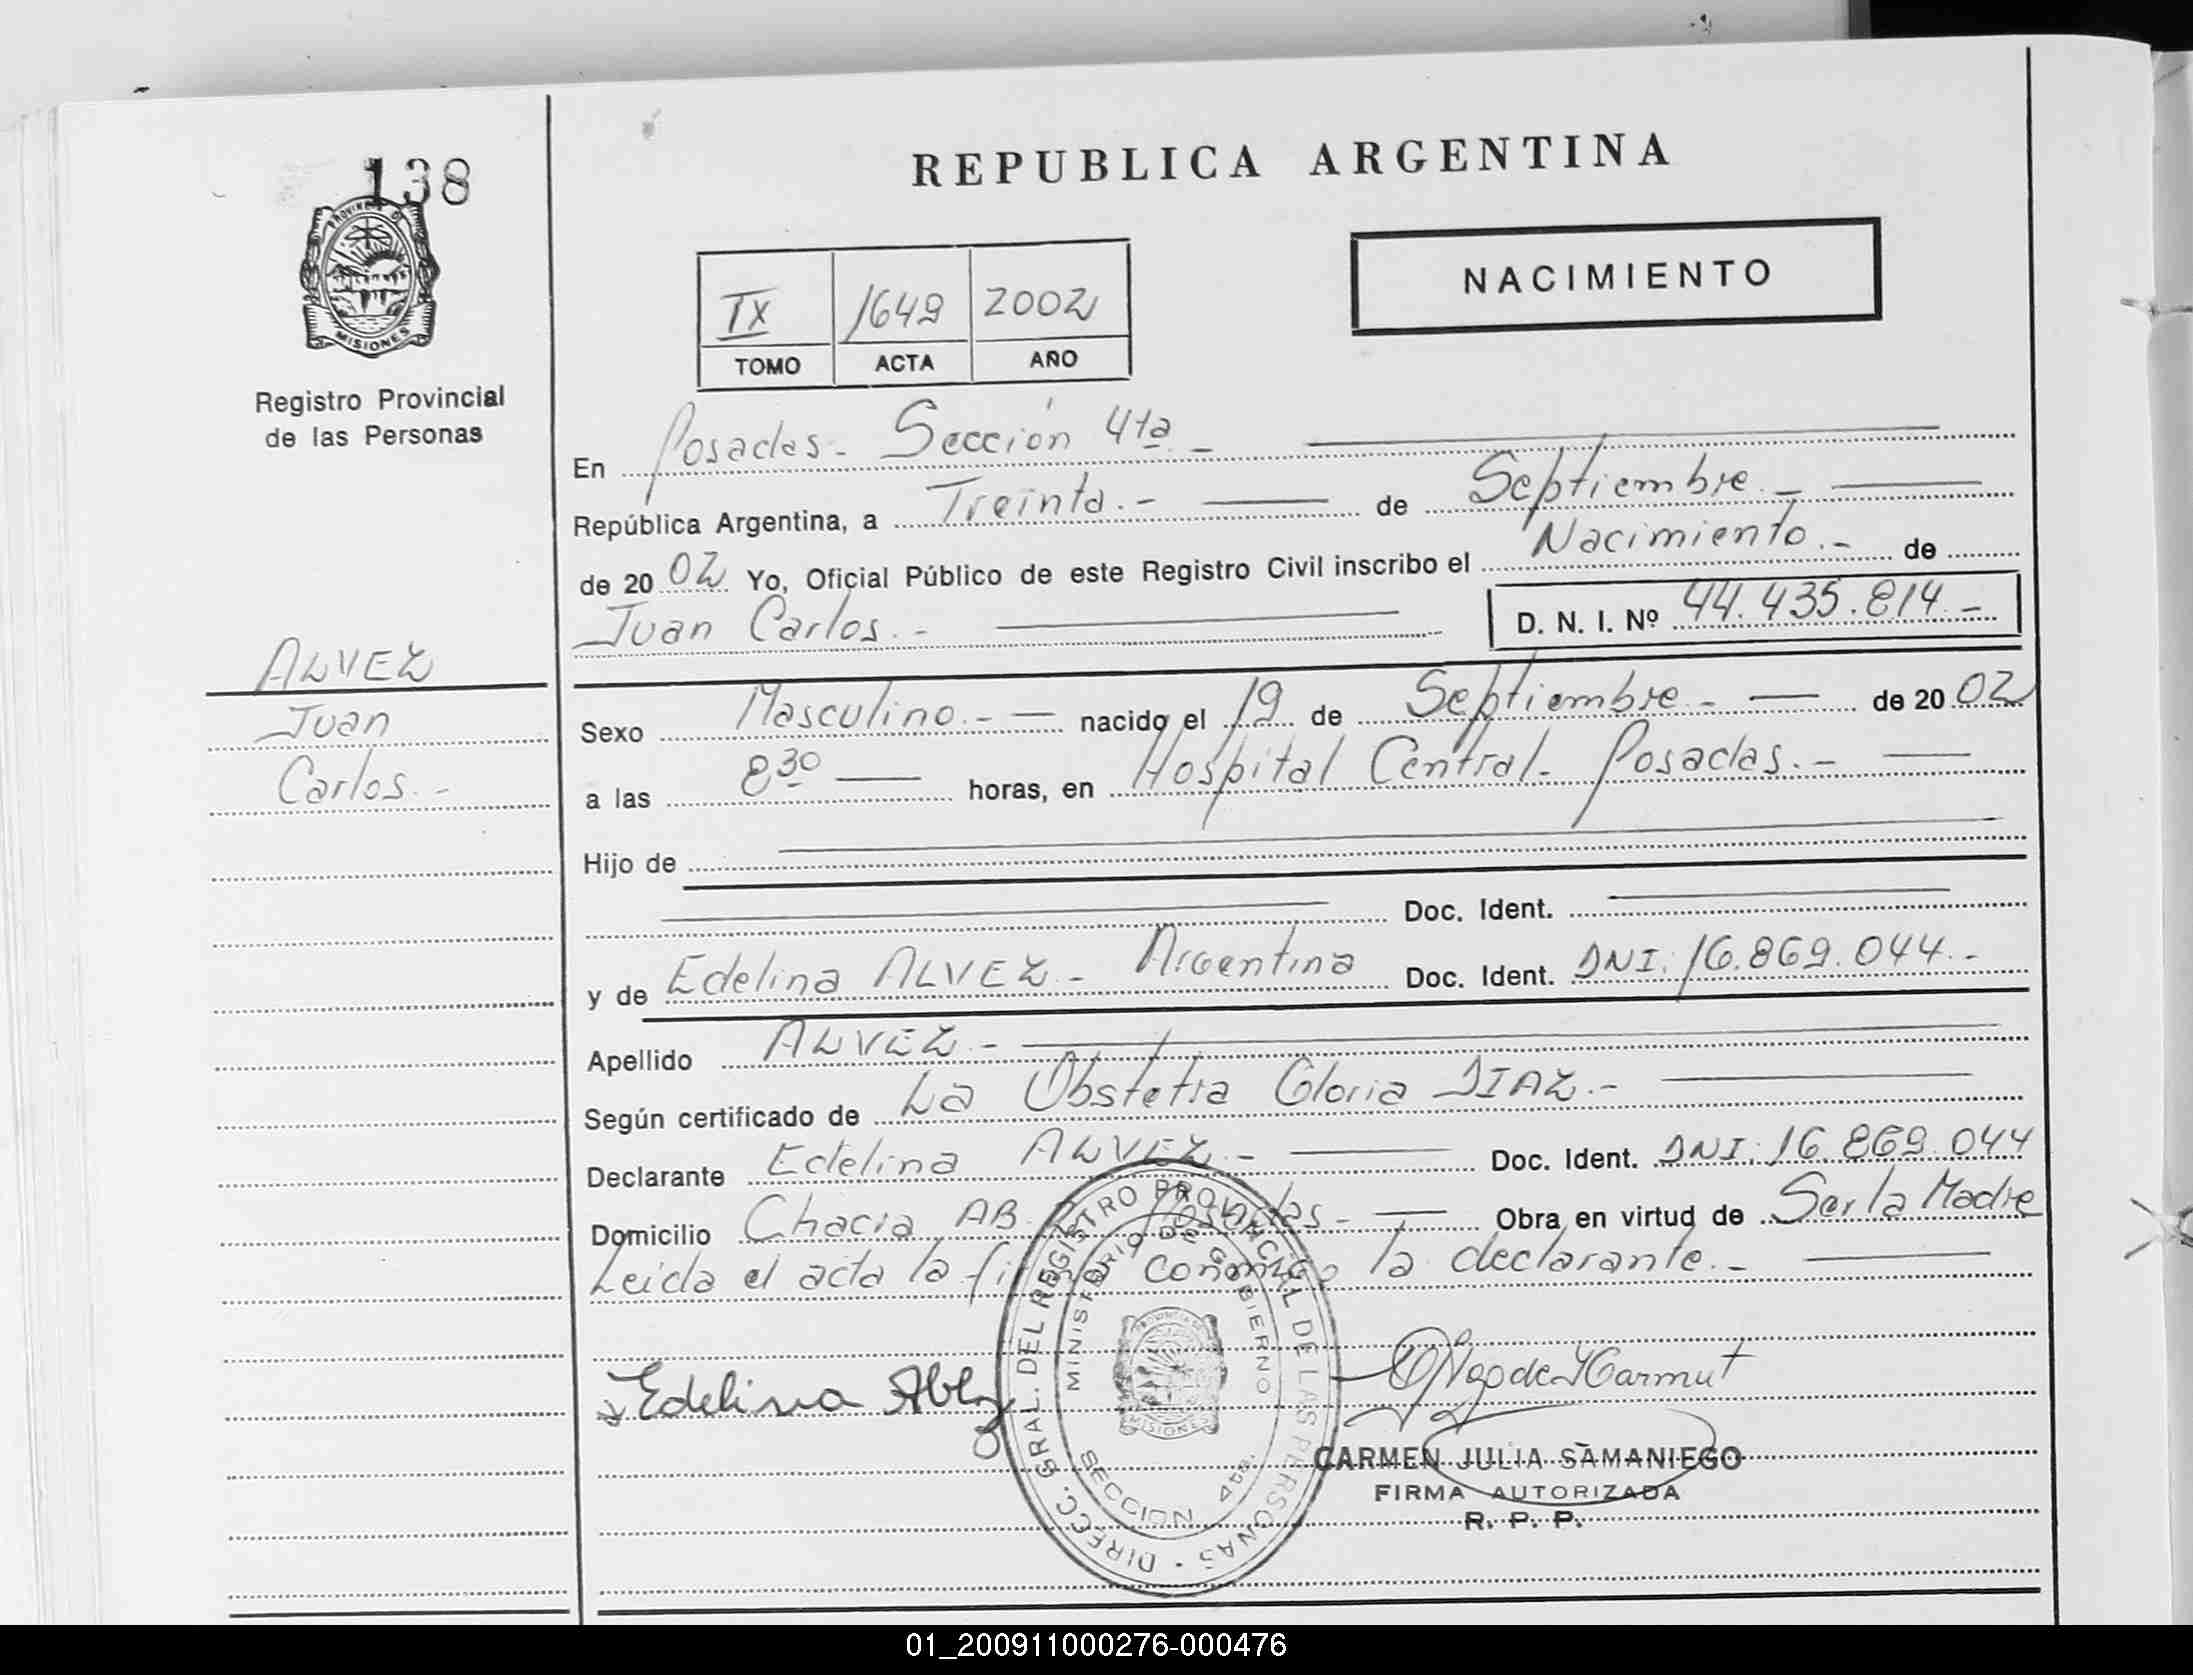 138
PROVINCIA DE
MISIONES
Registro Provincial
de las Personas
REPUBLICA ARGENTINA
NACIMIENTO
IX 1649 2002
TOMO ACTA AÑO
En Posadas - Sección 4ta -
República Argentina, a Treinta.- de Septiembre.-
de 2002 Yo, Oficial Público de este Registro Civil inscribo el Nacimiento.- de
Juan Carlos.- D. N. I. Nº 44.435.814.-
ALVEZ
Juan
Carlos.-
Sexo Masculino.- nacido el 19 de Septiembre.- de 2002
a las 8 30 horas, en Hospital Central - Posadas.-
Hijo de
Doc. Ident.
y de Edelina ALVEZ - Argentina Doc. Ident. DNI. 16.869.044.-
Apellido ALVEZ.-
Según certificado de La Obstetra Gloria DIAZ.-
Declarante Edelina ALVEZ.- Doc. Ident. DNI: 16.869.044
Domicilio Chacra AB. Posadas.- Obra en virtud de Ser la Madre
Leida el acta la firma conmigo la declarante.-
DIRECC. GRAL. DEL REGISTRO PROVINCIAL DE LAS PERSONAS
MINISTERIO DE GOBIERNO
MISIONES
SECCION 4ta.
Edelina
CARMEN JULIA SAMANIEGO
FIRMA AUTORIZADA
R. P. P.
01_200911000276-000476